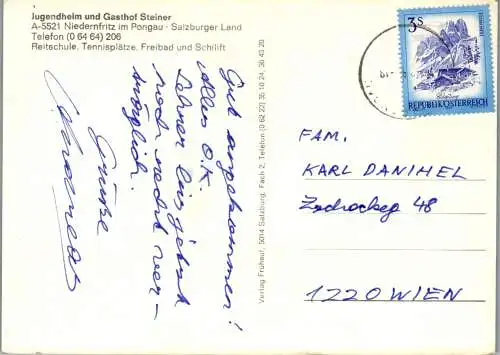 Jugendheim und Gasthof Steiner
A-5521 Niedernfritz im Pongau · Salzburger Land
Telefon (0 64 64) 206
Reitschule, Tennisplätze, Freibad und Schilift
Gut angekommen!
Alles O.K.
Lehrer bis jetzt
noch recht ver-
träglich.
Grüße
Verlag Frühauf, 5014 Salzburg, Fach 2, Telefon (0 62 22) 35 10 24, 30 43 20
3S
REPUBLIK ÖSTERREICH
FAM.
KARL DANIHEL
Zschockeg 48
1220 WIEN